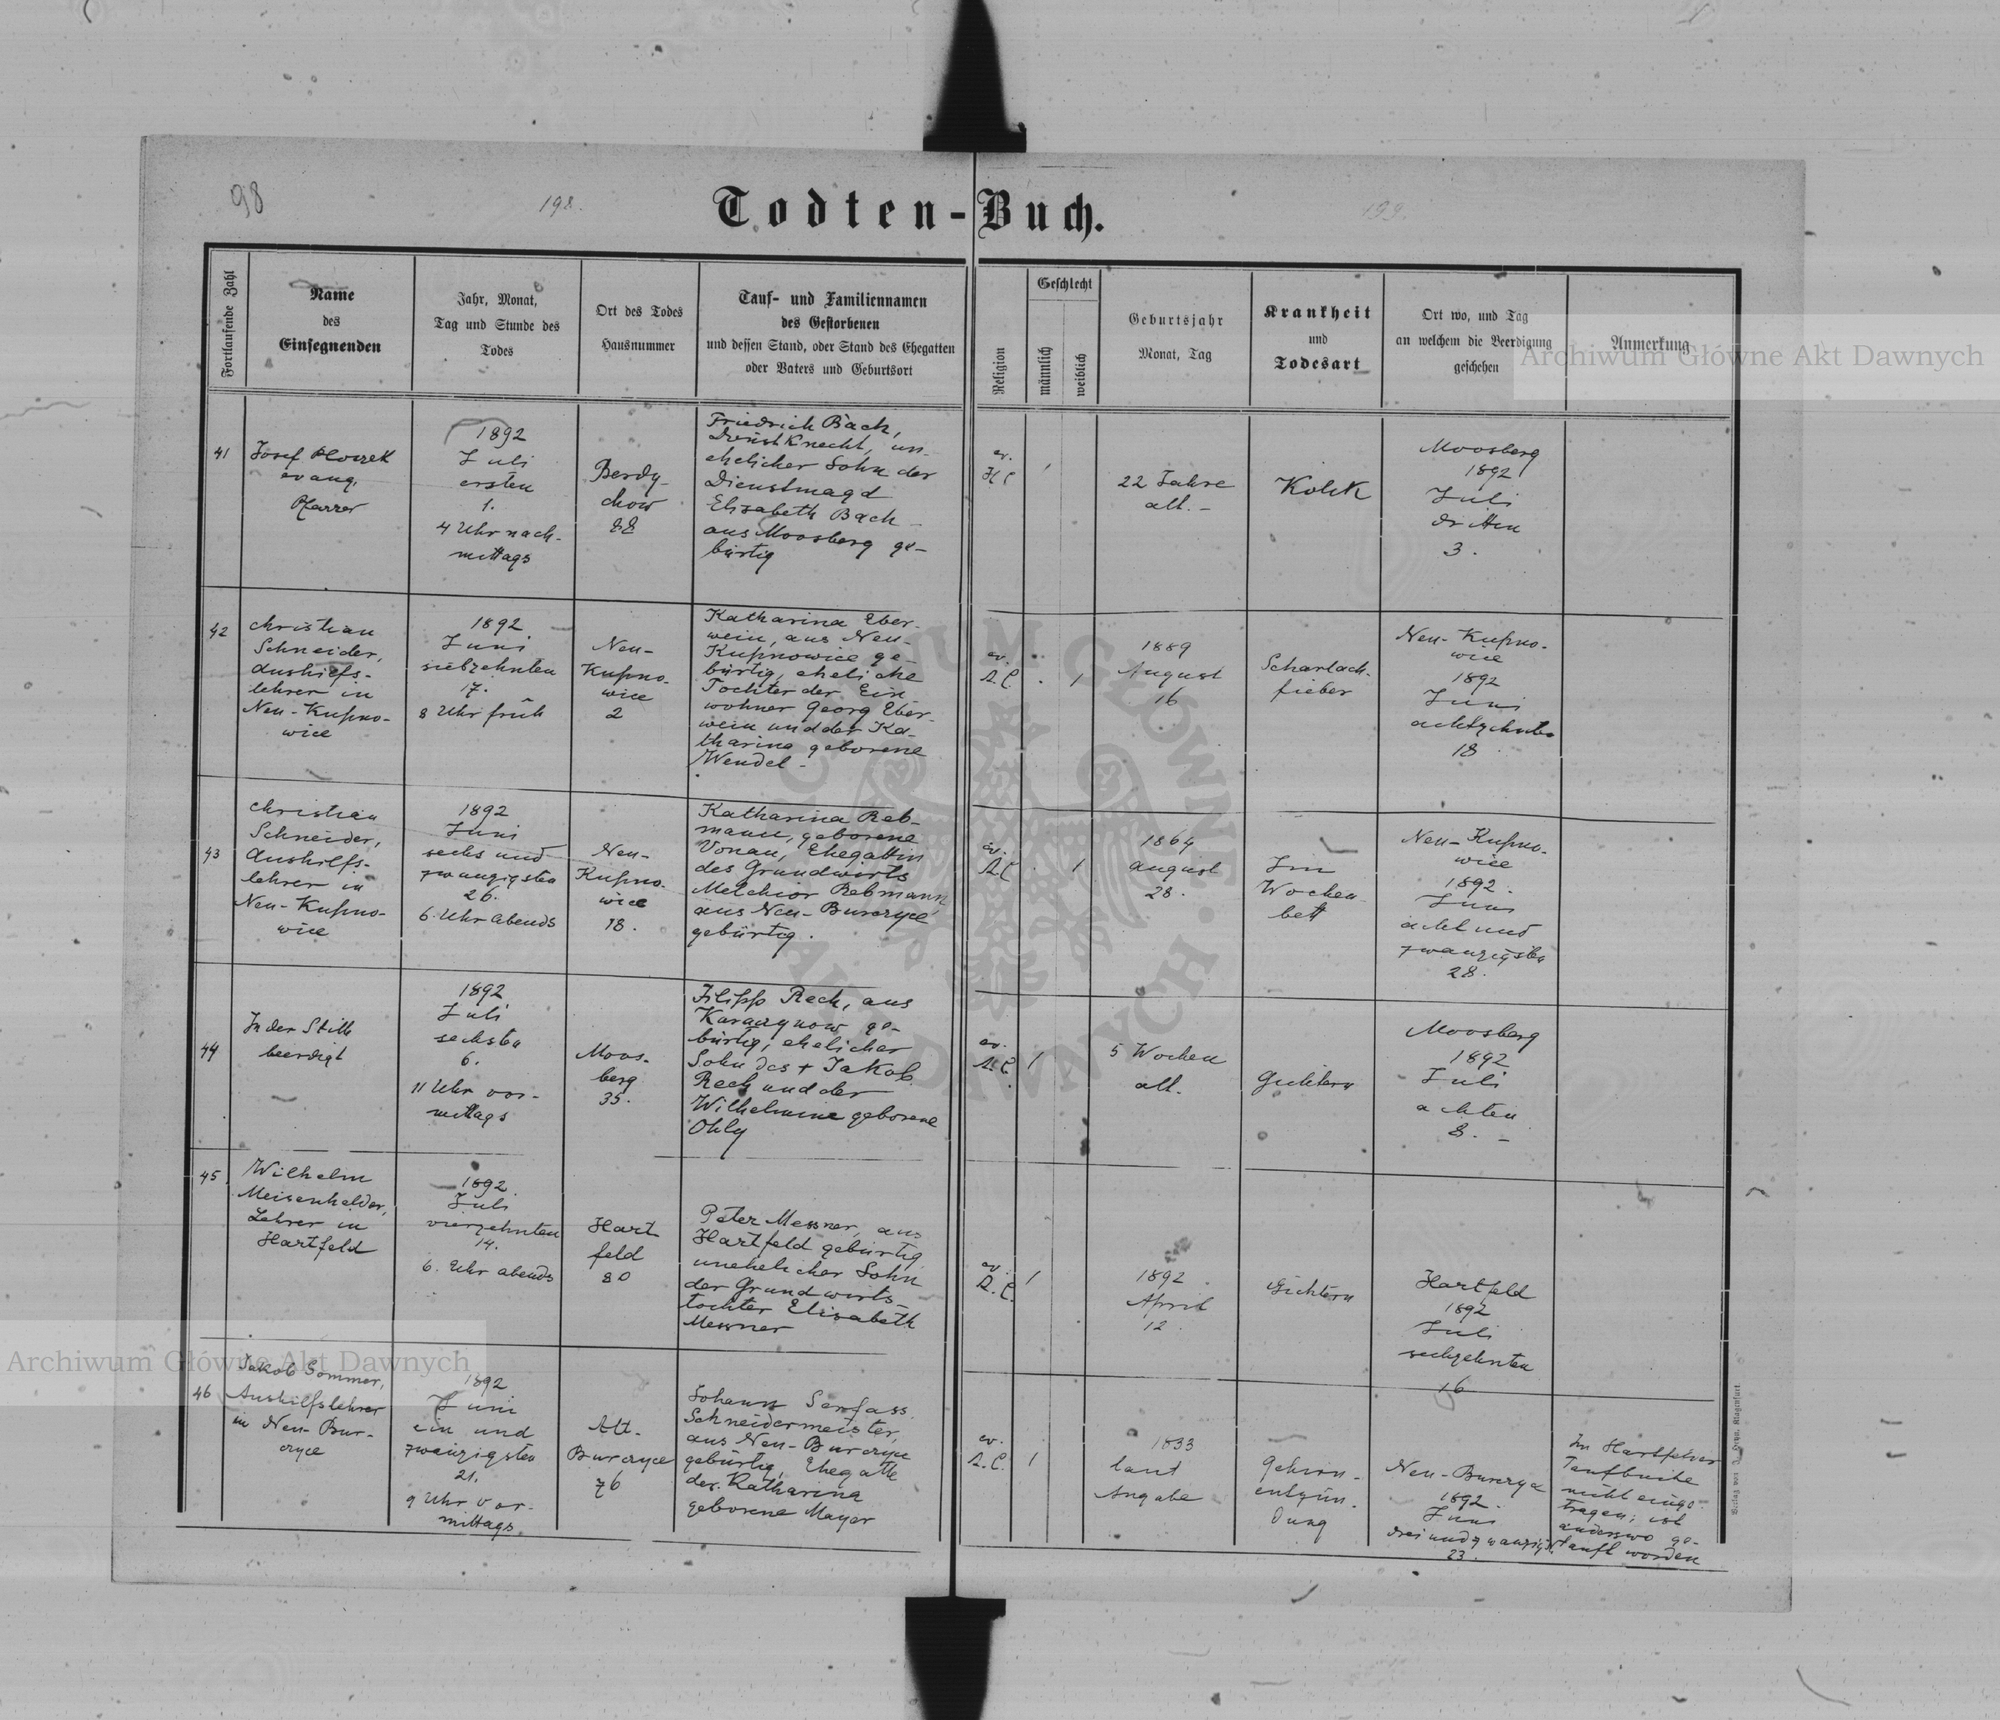 98
198.
199.
Todten-Buch.
Fortlaufende Zahl
Name
des
Einsegnenden
Jahr, Monat,
Tag und Stunde des
Todes
Ort des Todes
Hausnummer
Tauf- und Familiennamen
des Gestorbenen
und dessen Stand, oder Stand des Ehegatten
oder Vaters und Geburtsort
Religion
Geschlecht
männlich
weiblich
Geburtsjahr
Monat, Tag
Krankheit
und
Todesart
Ort wo, und Tag
an welchem die Beerdigung
geschehen
Anmerkung
Archiwum Główne Akt Dawnych
41
Josef
evang.
Pfarrer
1892
Juli
ersten
1.
4 Uhr nach-
mittags
Berdy-
chow
88
Friedrich Bach,
Dienstknecht, un-
ehelicher Sohn der
Dienstmagd
Elisabeth Bach
aus Moosberg ge-
bürtig
ev.
1
22 Jahre
alt. -
Kolik
Moosberg
1892
Juli
dritten
3.
42
Christian
Schneider,
Aushilfs-
lehrer in
Neu-Kupno-
wice
1892
Juni
siebzehnten
17.
8 Uhr früh
Neu-
Kupno-
wice
2
Katharina Eber-
wein, aus Neu-
Kupnowice ge-
bürtig, eheliche
Tochter der Ein
wohner Georg Eber-
wein und der Ka-
tharina geborene
Wendel -
ev.
A.C.
1
1889
August
16
Scharlach-
fieber
Neu-Kupno-
wice
1892
Juni
achtzehnten
18
43
Christian
Schneider,
Aushilfs-
lehrer in
Neu-Kupno-
wice
1892
Juni
sechs und
zwanzigsten
26.
6. Uhr abends
Neu-
Kupno-
wice
18.
Katharina Reb-
mann, geborene
Vonau, Ehegattin
des Grundwirts
Melchior Rebmann,
aus Neu-Burczyce
gebürtig.
ev.
A.C.
1
1864
August
28.
Im
Wochen-
bett
Neu-Kupno-
wice
1892.
Juni
acht und
zwanzigsten
28.
44
In der Stille
beerdigt
1892
Juli
sechsten
6.
11 Uhr vor-
mittags
Moos-
berg
35.
Filipp Rech, aus
Karaczynow ge-
bürtig, ehelicher
Sohn des + Jakob
Rech und der
Wilhelmine geborene
Ohly
ev.
A.C.
1
5 Wochen
alt.
Gichtern
Moosberg
1892
Juli
achten
8. -
45
Wilhelm
Meisenhelder,
Lehrer in
Hartfeld
1892
Juli
vierzehnten
14.
6. Uhr abends
Hart
feld
80
Peter Messner, aus
Hartfeld gebürtig
unehelicher Sohn
der Grundwirts-
tochter Elisabeth
Messner
ev.
A.C.
1
1892
April
12.
Gichtern
Hartfeld
1892
Juli
sechzehnten
16
46
Jakob Sommer,
Aushilfslehrer
in Neu-Bur-
czyce
1892
Juni
ein und
zwanzigsten
21.
9 Uhr vor-
mittags
Alt-
Burczyce
76
Johann Serfass
Schneidermeister,
aus Neu-Burczyce
gebürtig, Ehegatte
der Katharina
geborene Mayer
ev.
A.C.
1
1833
laut
Angabe
Gehirn-
entzün-
dung
Neu-Burczyce
1892.
Juni
drei und zwanzigst.
23.
Im Hartfelder
Taufbuche
nicht einge-
tragen; ist
anderswo ge-
tauft worden
Archiwum Główne Akt Dawnych